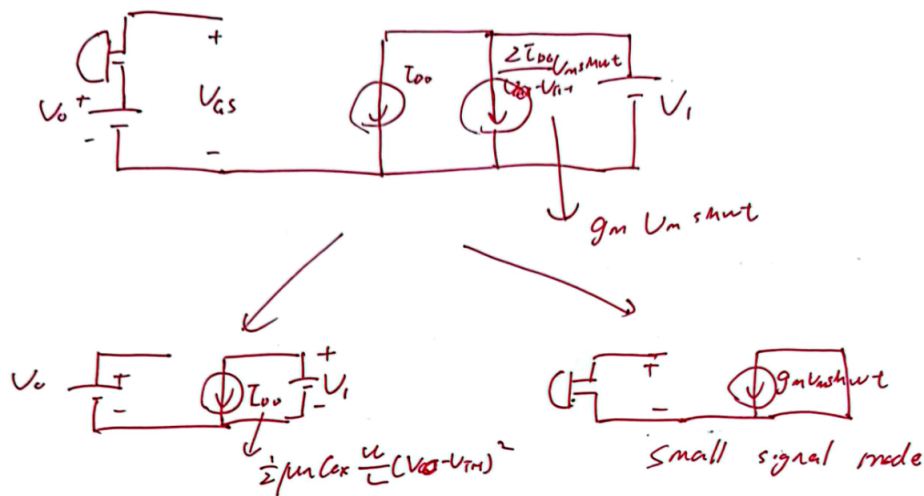 +
V₀ +
-
V_GS
-
I_D0
2I_D0 / -V_TH V_m sin ωt
V₁
g_m V_m sin ωt
V₀ + -
I_D0
+ V₁ -
½ μn Cox W/L (V -V_TH)²
+
-
g_m V_m sin ωt
Small signal mode